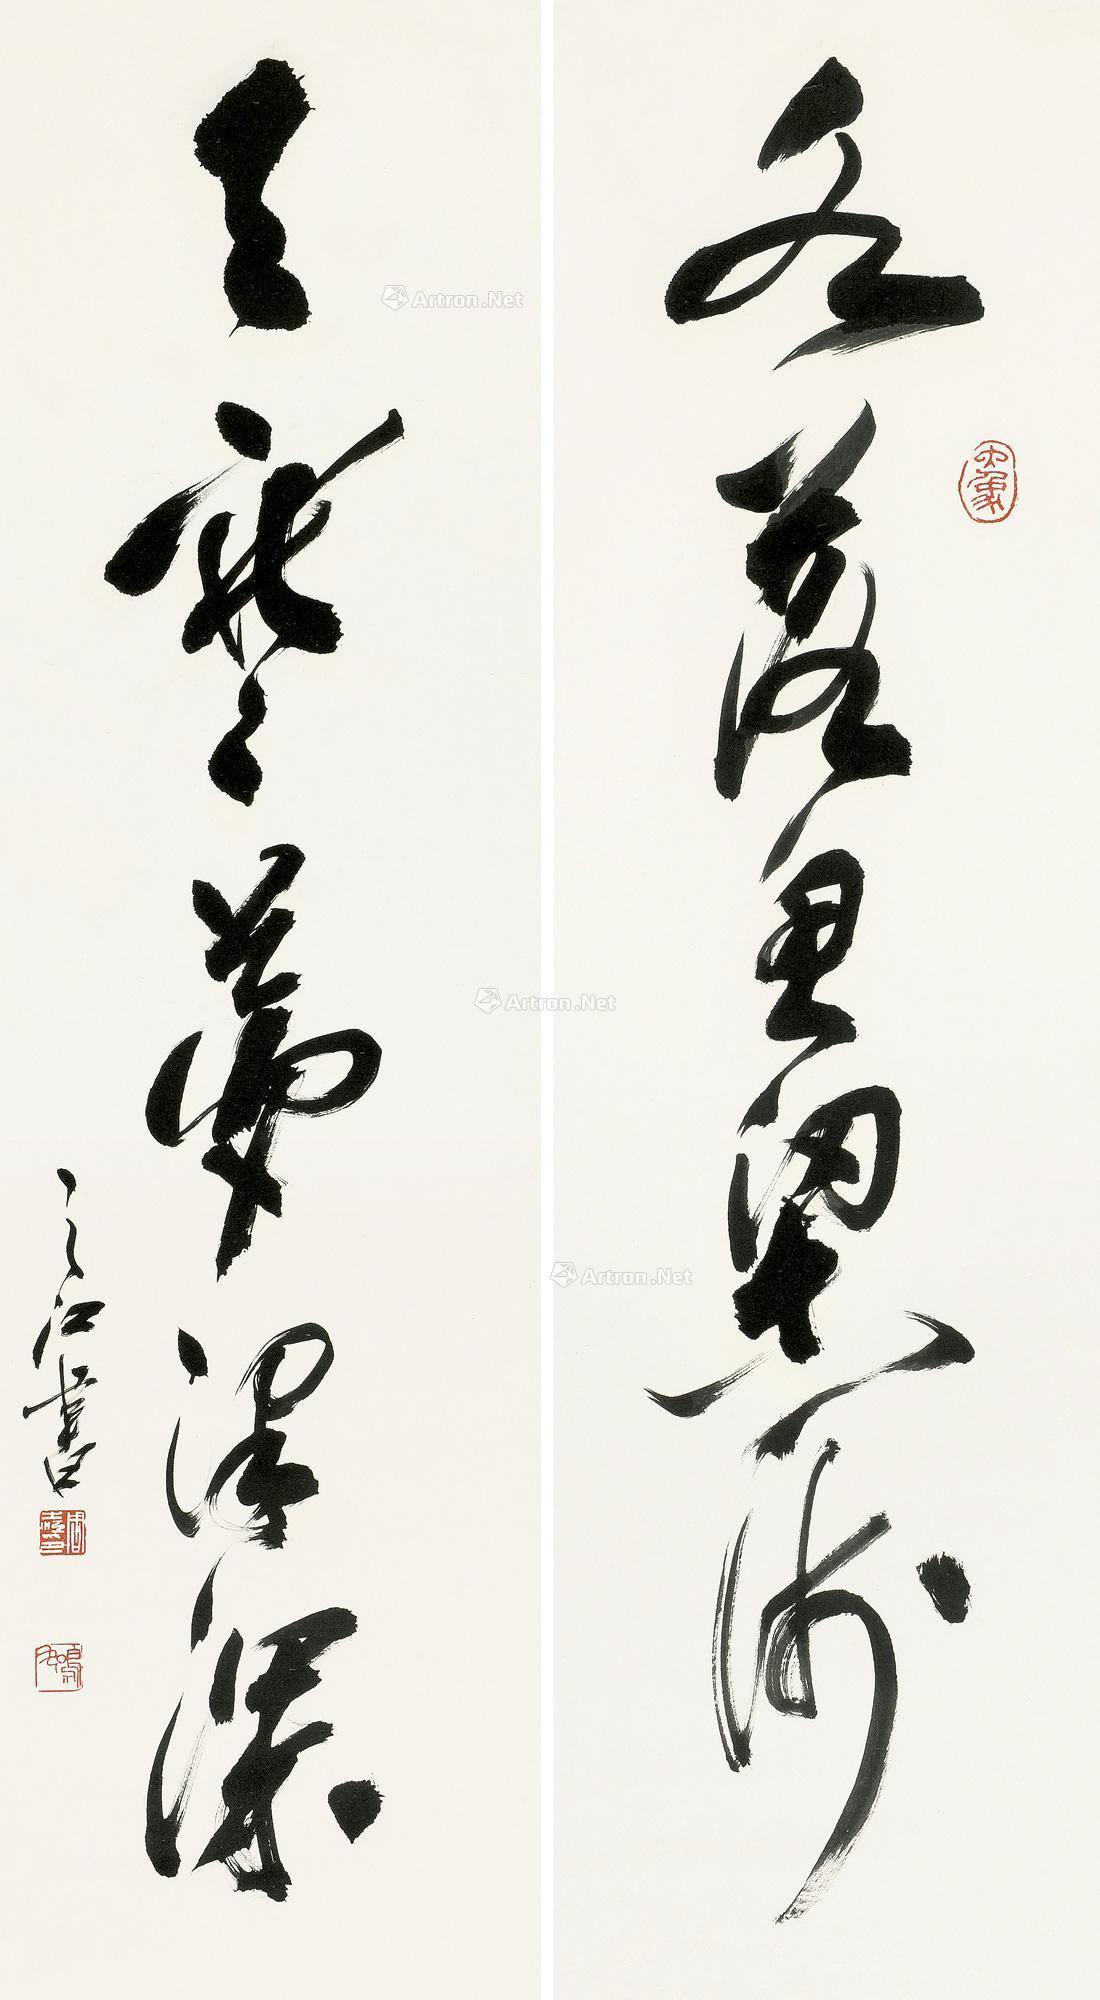 水落魚梁淺
天寒夢澤深
之江書
Artron.Net
Artron.Net
Artron.Net